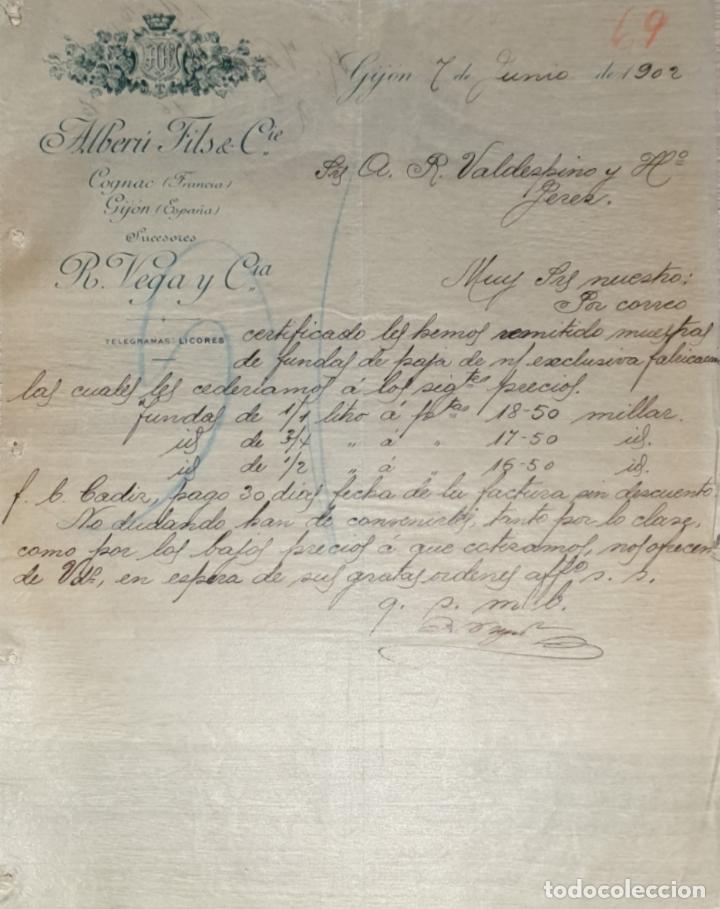 69
Gijón 7 de Junio de 1902
Alberú Fils & Cie
Cognac (Francia)
Gijón (España)
Sucesores
R. Vega y Cia
TELEGRAMAS: LICORES
Srs A. R. Valdespino y Hº
Jerez.
Muy Srs nuestro:
Por correo
certificado les hemos remitido muestras
de fundas de paja de n/ exclusiva fabricacion
las cuales les cederiamos á los sigtes precios.
fundas de 1/1 litro á ptas 18-50 millar.
id de 3/4 " á " 17-50 id.
id de 1/2 " á " 16-50 id.
f. b. Cadiz, pago 30 dias fecha de la factura sin descuento
No dudando han de convenirles, tanto por lo clase,
como por los bajos precios á que cotizamos, nos ofrecen
de Vds, en espera de sus gratas ordenes affmo s. s.
q. s. m. b.
R. Vega
todocoleccion